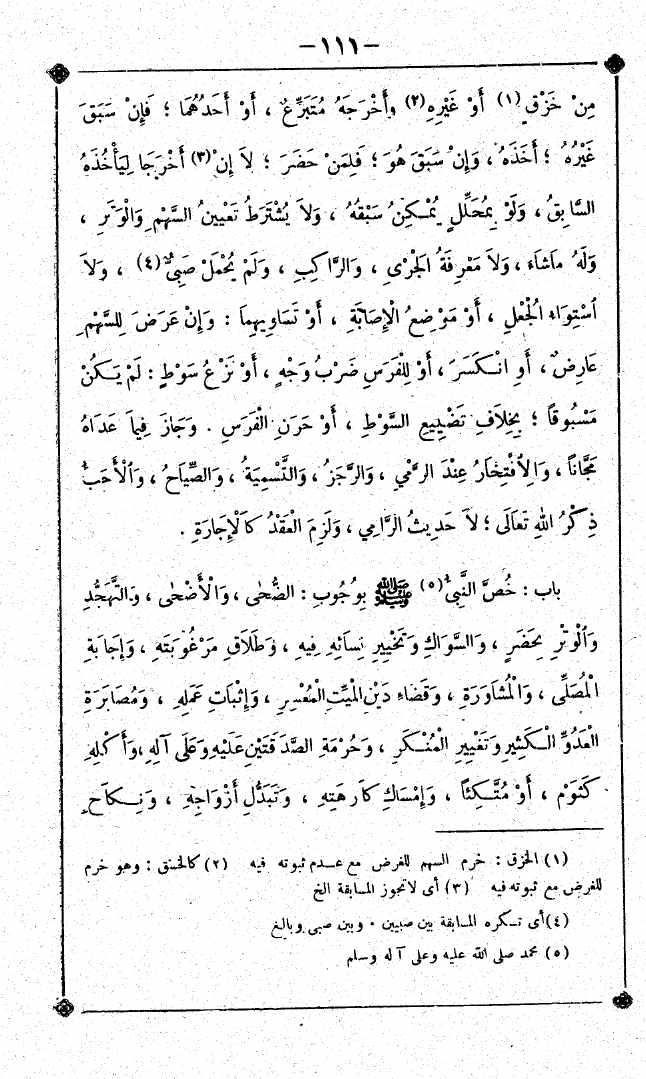 -١١١-
مِنْ خَزْقٍ (١) أَوْ غَيْرِهِ (٢) وأَخْرَجَهُ مُتَبَرِّعٌ ، أَوْ أَحَدُهُمَا ؛ فَإِنْ سَبَقَ
غَيْرُهُ ؛ أَخَذَهُ ، وَإِنْ سَبَقَ هُوَ ؛ فَلِمَنْ حَضَرَ ؛ لاَ إِنْ (٣) أَخْرَجَا لِيَأْخُذَهُ
السَّابِقُ ، وَلَوْ بِمُحَلِّلٍ يُمْكِنُ سَبْقُهُ ، وَلاَ يُشْتَرَطُ تَعْيِينُ السَّهْمِ وَالْوَتَرِ ،
وَلَهُ مَاشَاءَ ، وَلاَ مَعْرِفَةُ الْجَرْىِ ، وَالرَّاكِبِ ، وَلَمْ يُحْمَلْ صَبِىٌّ (٤) ، وَلاَ
اسْتِوَاءُ الْجُعْلِ ، أَوْ مَوْضِعُ الْإِصَابَةِ ، أَوْ تَسَاوِيهِمَا : وَإِنْ عَرَضَ لِلسَّهْمِ
عَارِضٌ ، أَوِ انْكَسَرَ ، أَوْ لِلْفَرَسِ ضَرْبُ وَجْهٍ ، أَوْ نَزْعُ سَوْطٍ : لَمْ يَكُنْ
مَسْبُوقًا ؛ بِخِلَافِ تَضْيِيعِ السَّوْطِ ، أَوْ حَرَنِ الْفَرَسِ . وَجَازَ فِيمَا عَدَاهُ
مَجَّانًا ، وَالِافْتِخَارُ عِنْدَ الرَّمْيِ ، وَالرَّجَزُ ، وَالتَّسْمِيَةُ ، وَالصِّيَاحُ ، وَالْأَحَبُّ
ذِكْرُ اللهِ تَعَالَى ؛ لاَ حَدِيثُ الرَّامِي ، وَلَزِمَ الْعَقْدُ كَالْإِجَارَةِ .
باب : خُصَّ النَّبِىُّ (٥) ﷺ بِوُجُوبِ : الضُّحَى ، وَالْأَضْحَى ، وَالتَّهَجُّدِ
وَالْوِتْرِ بِحَضَرٍ ، وَالسَّوَاكِ وَتَخْيِيرِ نِسَائِهِ فِيهِ ، وَطَلَاقِ مَرْغُوبَتِهِ ، وَإِجَابَةِ
الْمُصَلِّى ، وَالْمُشَاوَرَةِ ، وَقَضَاءِ دَيْنِ الْمَيِّتِ الْمُعْسِرِ ، وَإِثْبَاتِ عَمَلِهِ ، وَمُصَابَرَةِ
الْعَدُوِّ الْكَثِيرِ وَتَغْيِيرِ الْمُنْكَرِ ، وَحُرْمَةِ الصَّدَقَتَيْنِ عَلَيْهِ وَعَلَى آلِهِ ، وَأَكْلِهِ
كَثَوْمٍ ، أَوْ مُتَّكِئًا ، وَإِمْسَاكِ كَارِهَتِهِ ، وَتَبَدُّلِ أَزْوَاجِهِ ، وَنِكَاحِ
(١) الخزق : خرم السهم للغرض مع عدم ثبوته فيه (٢) كالخسق : وهو خرم
للغرض مع ثبوته فيه (٣) أى لاتجوز المسابقة الخ
(٤) أى تكره المسابقة بين صبيين . وبين صبى وبالغ
(٥) محمد صلى الله عليه وعلى آله وسلم